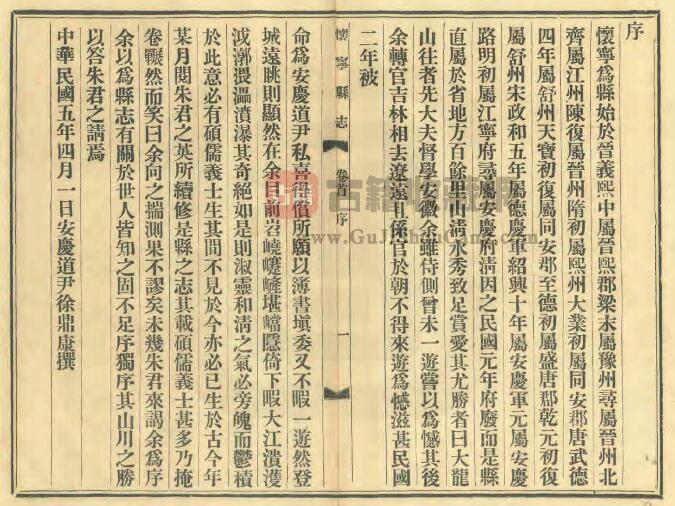 序
懷寧爲縣始於晉義熙中屬晉熙郡梁末屬豫州尋屬晉州北
齊屬江州陳復屬晉州隋初屬熙州大業初屬同安郡唐武德
四年屬舒州天寶初復屬同安郡至德初屬盛唐郡乾元初復
屬舒州宋政和五年屬德慶軍紹興十年屬安慶軍元屬安慶
路明初屬江寧府尋屬安慶府淸因之民國元年府廢而是縣
直屬於省地方百餘里山淸水秀致足賞愛其尤勝者曰大龍
山往者先大夫督學安徽余雖侍側曾未一遊嘗以爲憾其後
余轉官吉林相去遼遠且係官於朝不得來遊爲憾滋甚民國
二年被
懷寧縣志
卷首 序
一
命爲安慶道尹私喜得償所願以簿書塡委又不暇一遊然登
城遠眺則顯然在余目前岩嶢㠔嵼堪嵣隱倚下瞰大江潰濩
泧漷猥㵝濆瀑其奇絕如是則淑靈和淸之氣必旁魄而鬱積
於此意必有碩儒義士生其間不見於今亦必已生於古今年
某月閱朱君之英所續修是縣之志其載碩儒義士甚多乃掩
卷囅然而笑曰余向之揣測果不謬矣未幾朱君來謁余爲序
余以爲縣志有關於世人皆知之固不足序獨序其山川之勝
以答朱君之請焉
中華民國五年四月一日安慶道尹徐鼎康撰
www.GuJiShuGuan.Com